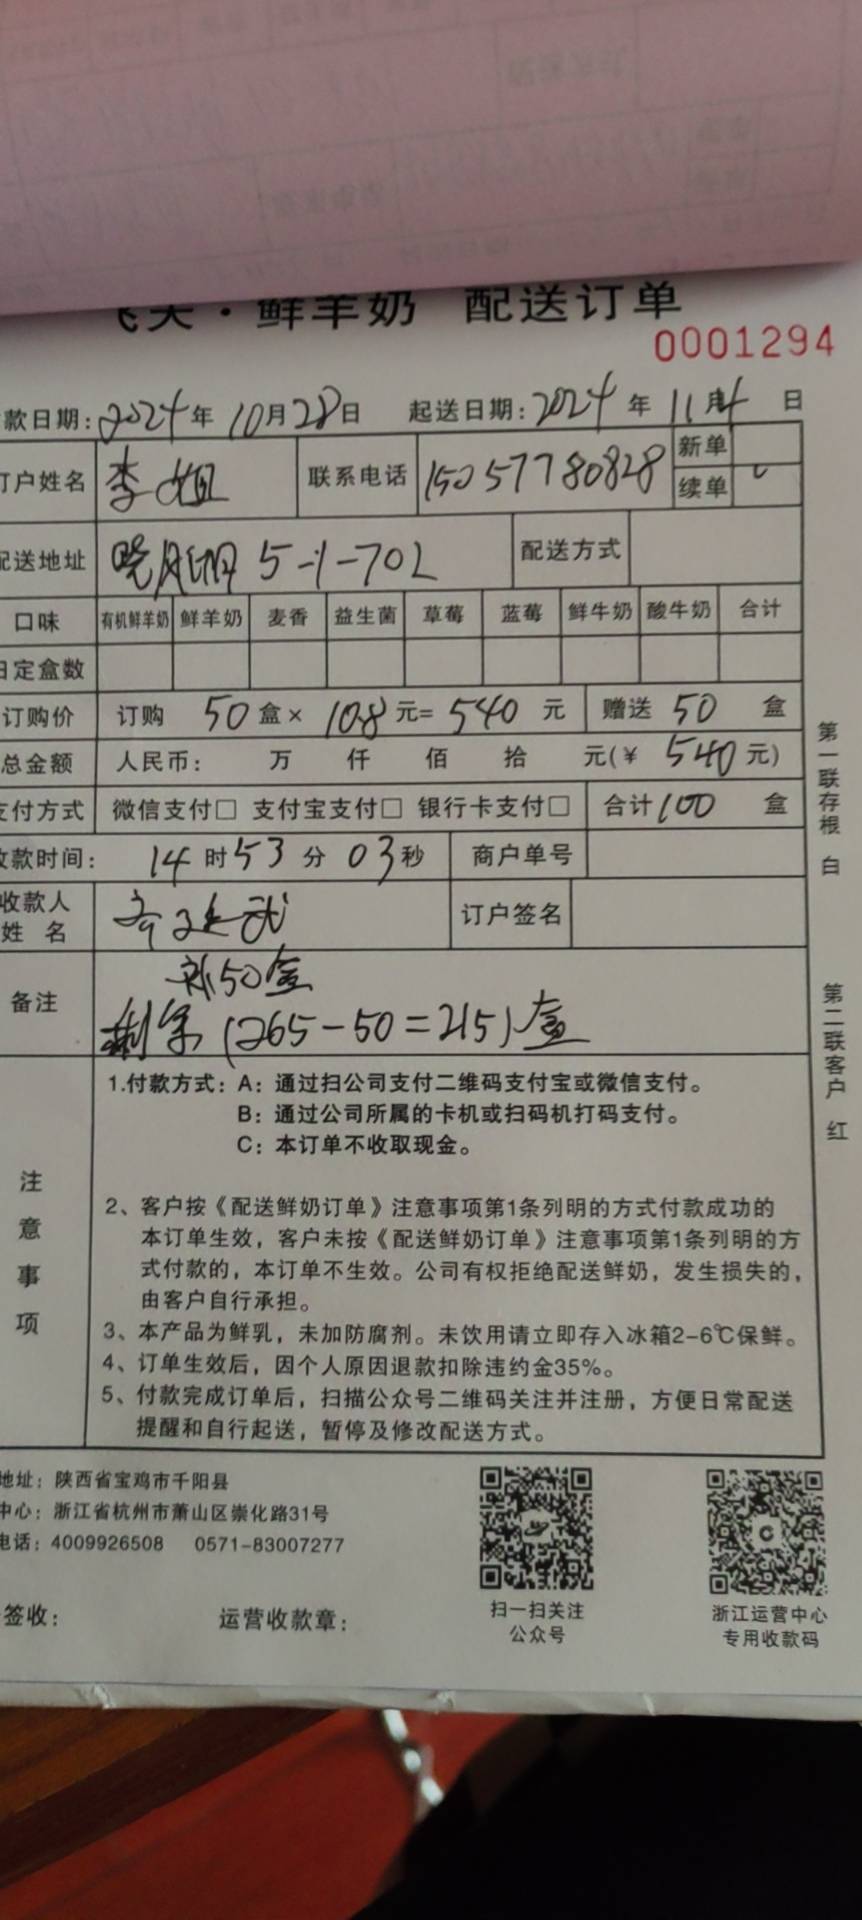 飞天·鲜羊奶 配送订单
0001294
款日期: 2024年10月28日 起送日期: 2024年11月4日
订户姓名 李姐 联系电话 15057780828 新单
续单 ✓
配送地址 晓月 5-1-702 配送方式
口味 有机鲜羊奶 鲜羊奶 麦香 益生菌 草莓 蓝莓 鲜牛奶 酸牛奶 合计
日定盒数
订购价 订购 50 盒× 10.8 元= 540 元 赠送 50 盒
总金额 人民币: 万 仟 佰 拾 元(¥ 540元)
支付方式 微信支付□ 支付宝支付□ 银行卡支付□ 合计100 盒
收款时间: 14时53分03秒 商户单号
收款人
姓 名 订户签名
备注 补50盒
剩余(265-50=215)盒
注意事项
1.付款方式: A: 通过扫公司支付二维码支付宝或微信支付。
B: 通过公司所属的卡机或扫码机打码支付。
C: 本订单不收取现金。
2、客户按《配送鲜奶订单》注意事项第1条列明的方式付款成功的
本订单生效，客户未按《配送鲜奶订单》注意事项第1条列明的方
式付款的，本订单不生效。公司有权拒绝配送鲜奶，发生损失的，
由客户自行承担。
3、本产品为鲜乳，未加防腐剂。未饮用请立即存入冰箱2-6℃保鲜。
4、订单生效后，因个人原因退款扣除违约金35%。
5、付款完成订单后，扫描公众号二维码关注并注册，方便日常配送
提醒和自行起送，暂停及修改配送方式。
第一联存根 白
第二联客户 红
地址: 陕西省宝鸡市千阳县
中心: 浙江省杭州市萧山区崇化路31号
电话: 4009926508 0571-83007277
签收: 运营收款章:
扫一扫关注
公众号
浙江运营中心
专用收款码